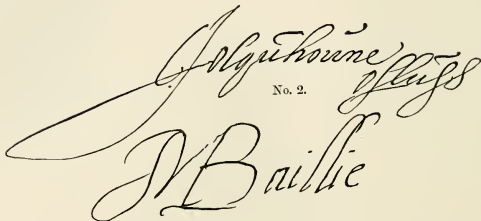 JColquhoune
offluss
No. 2.
W Baillie